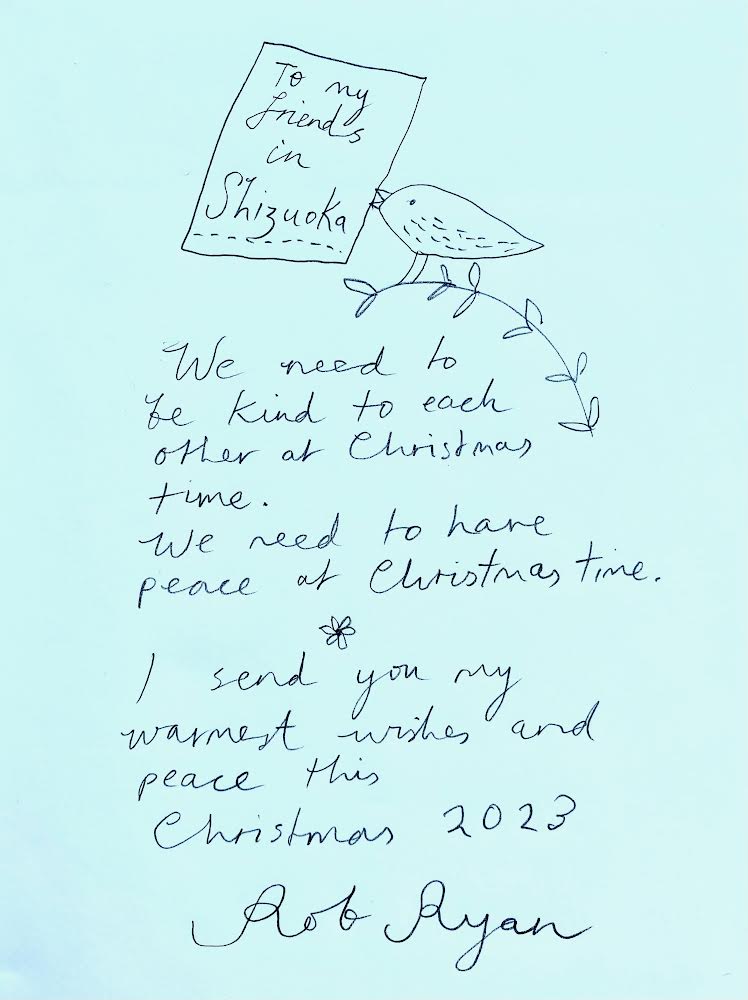 To my
friends
in
Shizuoka
We need to
be kind to each
other at Christmas
time.
We need to have
peace at Christmas time.
I send you my
warmest wishes and
peace this
Christmas 2023
Rob Ryan